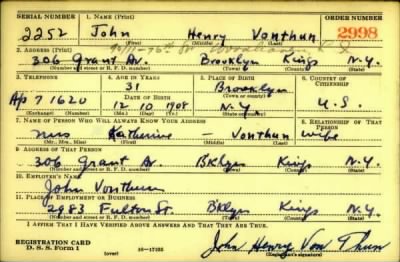 SERIAL NUMBER 1. NAME (Print) ORDER NUMBER
2252 John Henry Vonthun 2998
(First) (Middle) (Last)
2. ADDRESS (Print)
306 Grant Av. Brooklyn Kings N.Y.
(Number and street or R. F. D. number) (Town) (County) (State)
3. TELEPHONE 4. AGE IN YEARS 5. PLACE OF BIRTH 6. COUNTRY OF CITIZENSHIP
31 Brooklyn
DATE OF BIRTH (Town or county)
Ap 7 1620 12 10 1908 N.Y. U.S.
(Exchange) (Number) (Mo.) (Day) (Yr.) (State or country)
7. NAME OF PERSON WHO WILL ALWAYS KNOW YOUR ADDRESS 8. RELATIONSHIP OF THAT PERSON
Mrs Katherine - Vonthun wife
(Mr., Mrs., Miss) (First) (Middle) (Last)
9. ADDRESS OF THAT PERSON
306 Grant Av. Bklyn Kings N.Y.
(Number and street or R. F. D. number) (Town) (County) (State)
10. EMPLOYER'S NAME
John Vonthun
11. PLACE OF EMPLOYMENT OR BUSINESS
2983 Fulton St. Bklyn Kings N.Y.
(Number and street or R. F. D. number) (Town) (County) (State)
I AFFIRM THAT I HAVE VERIFIED ABOVE ANSWERS AND THAT THEY ARE TRUE.
REGISTRATION CARD
D. S. S. Form 1 (over) 16-17105 John Henry Von Thun
(Registrant's signature)